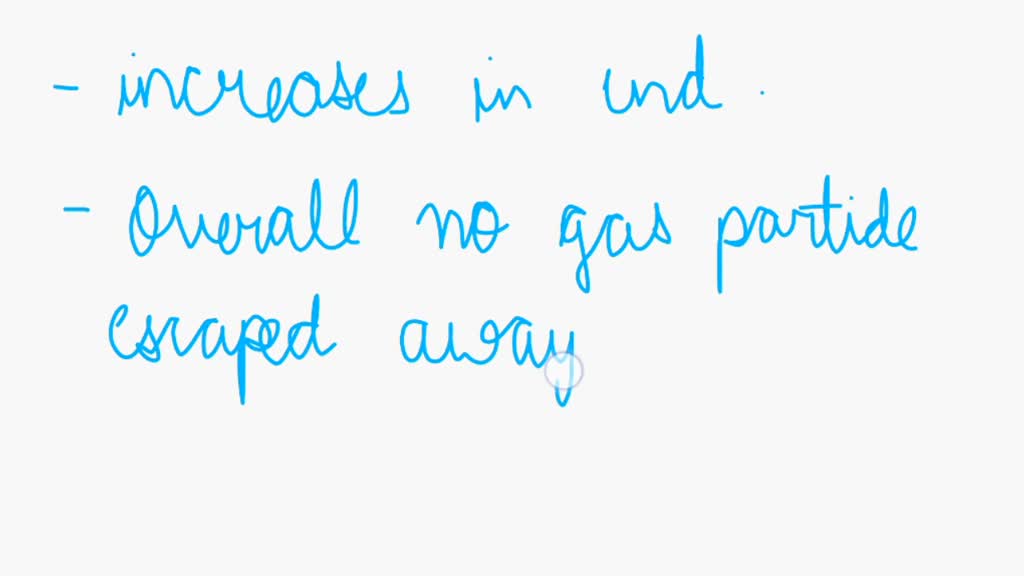 - increases in end.
- Overall no gas particle
escaped away